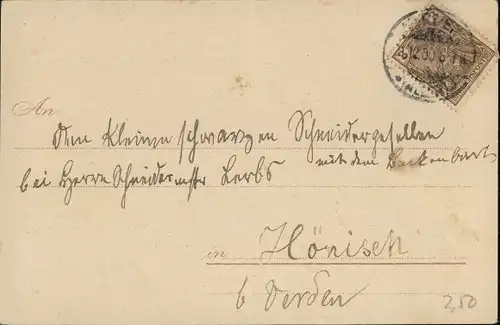 An
dem kleinen schwarzen Schneidergesellen
mit dem Backenbart
bei Herrn Schneidermstr Lerbs
in Hönisch
b Verden
2,50